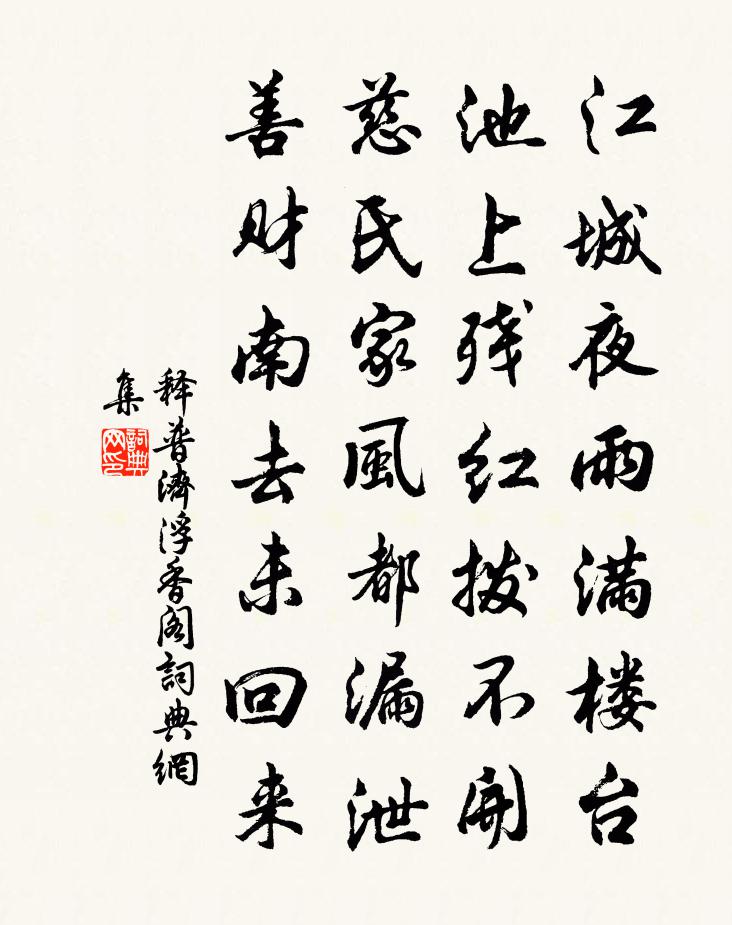 江城夜雨满楼台
池上残红拨不開
慈氏家風都漏泄
善财南去未回来
释普濟浮香阁詞典網
集
詞典
网印